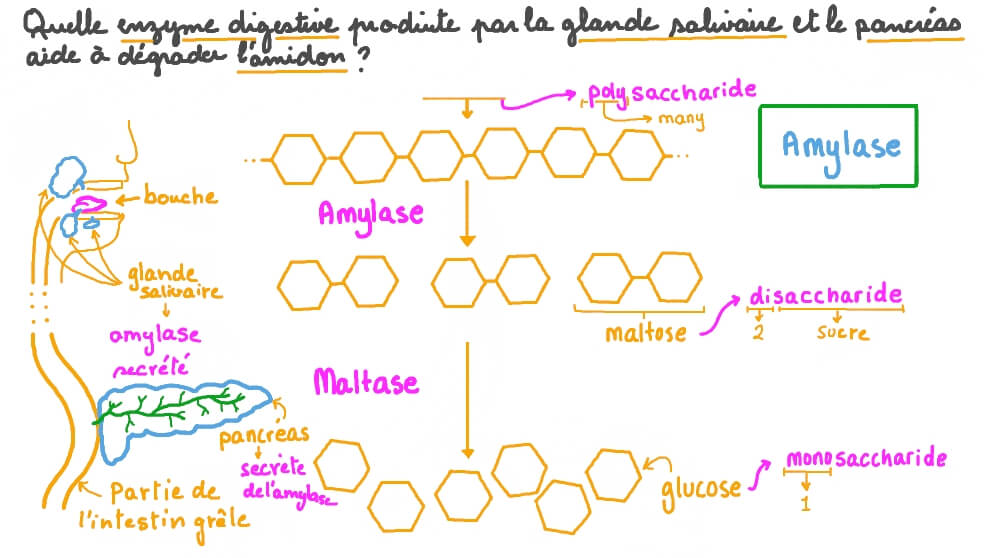 Quelle enzyme digestive produite par la glande salivaire et le pancréas
aide à dégrader l'amidon ?
polysaccharide
many
Amylase
bouche
Amylase
glande
salivaire
amylase
secrété
disaccharide
2 sucre
maltose
Maltase
pancréas
secrète
de l'amylase
Partie de
l'intestin grêle
glucose
monosaccharide
1